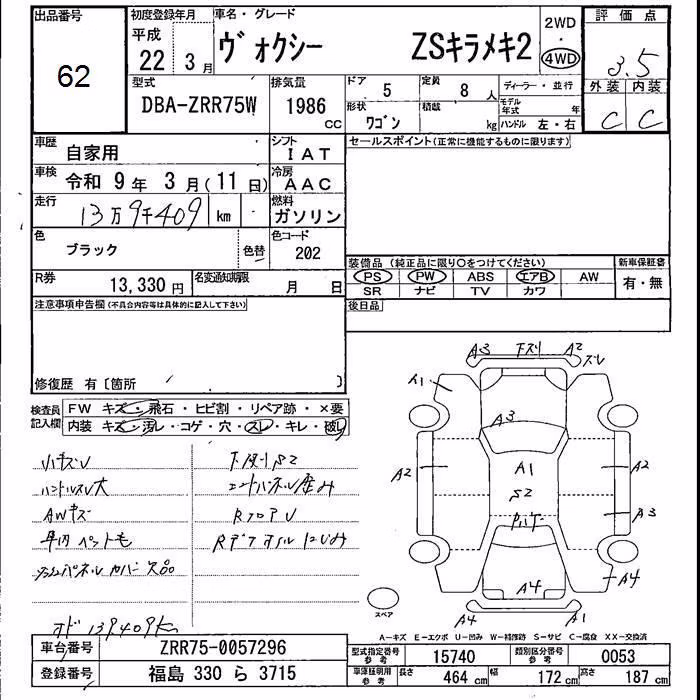 出品番号
62
初度登録年月
平成
22年 3月
車名・グレード
ヴォクシー ZSキラメキ2
2WD
・
4WD
評価点
3.5
外装 内装
C C
型式
DBA-ZRR75W
排気量
1986
CC
ドア
5
定員
8人
ディーラー・並行
形状
ワゴン
積載
kg
モデル年式 年
ハンドル 左・右
車歴
自家用
シフト
IAT
セールスポイント(正常に機能するものに限ります)
車検
令和 9年 3月(11日)
冷房
AAC
走行
13万9千409 km
燃料
ガソリン
色
ブラック
色替
色コード
202
装備品(純正品に限り○をつけてください)
新車保証書
PS PW ABS エアB AW
有・無
SR ナビ TV カワ
R券
13,330円
名変通知期限
月 日
後日品
注意事項申告欄(不具合内容等は具体的に記入して下さい)
修復歴 有〔箇所 〕
検査員
記入欄
FW キズ・飛石・ヒビ割・リペア跡・×要
内装 キズ・汚レ・コゲ・穴・スレ・キレ・破レ
小キズU
下廻りS2
ハンドルスレ大
AWキズ
RフロアU
車内ペット毛
オド 139409km
A3 下スリ A2
ズレ
A1
A3
A2 A1 A2
S2
A3
A4 A4
スペア
A4 A1
A-キズ E-エクボ U-凹み W-補修跡 S-サビ C-腐食 XX-交換済
車台番号
ZRR75-0057296
型式指定番号
参考
15740
類別区分番号
参考
0053
登録番号
福島 330 ら 3715
車庫証明用
参考
長さ
464 cm
幅
172 cm
高さ
187 cm